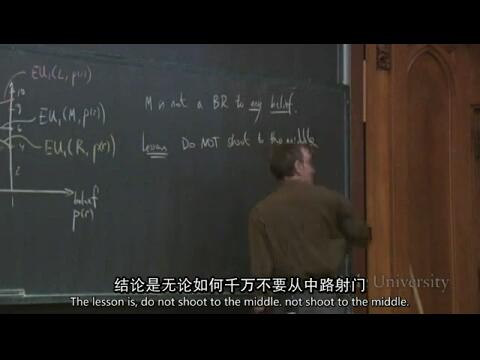 EU₁(L, p(r))
EU₁(M, p(r))
EU₁(R, p(r))
10
9
6
4
2
1
belief
p(r)
M is not a BR to any belief.
Lesson Do NOT shoot to the middle
University
结论是无论如何千万不要从中路射门
The lesson is, do not shoot to the middle. not shoot to the middle.